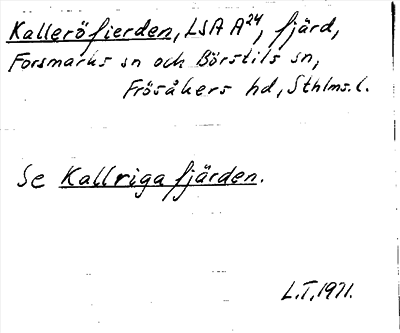 Kalleröfierden, LSA A24, fjärd,
Forsmarks sn och Börstils sn,
Frösåkers hd, Sthlms. l.
Se Kallrigafjärden.
L.T. 1971.